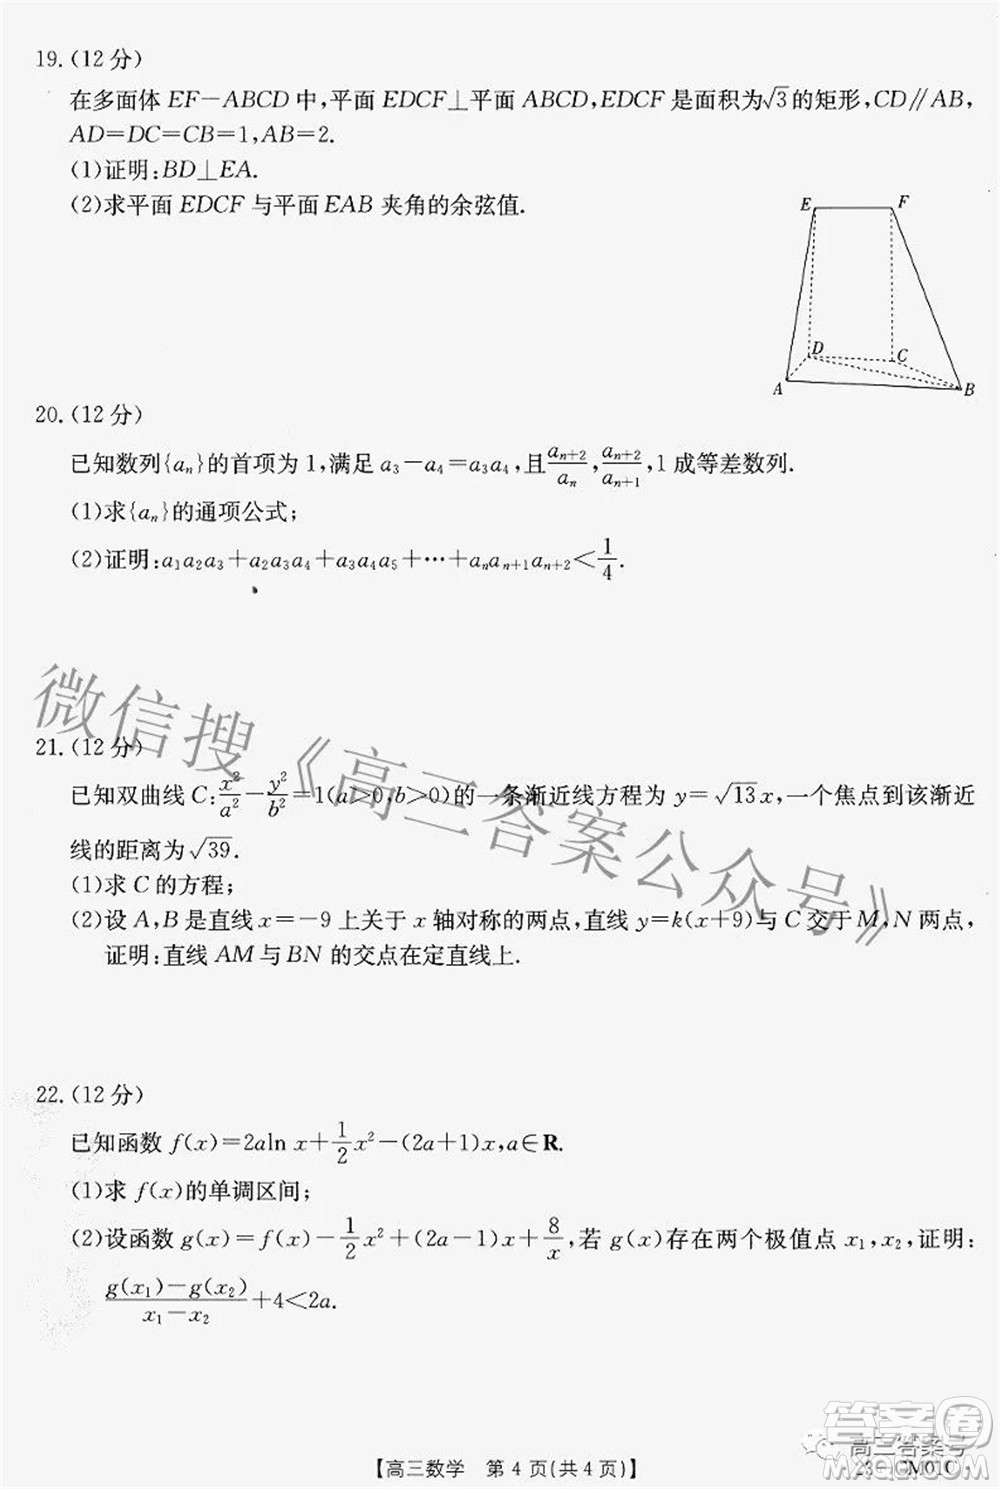 19.(12分)
在多面体 EF-ABCD 中,平面 EDCF⊥平面 ABCD,EDCF 是面积为√3的矩形,CD∥AB,
AD=DC=CB=1,AB=2.
(1)证明:BD⊥EA.
(2)求平面 EDCF 与平面 EAB 夹角的余弦值.
E F
D C
A B
20.(12分)
已知数列{aₙ}的首项为1,满足 a₃-a₄=a₃a₄,且 aₙ₊₂/aₙ, aₙ₊₂/aₙ₊₁, 1成等差数列.
(1)求{aₙ}的通项公式;
(2)证明:a₁a₂a₃+a₂a₃a₄+a₃a₄a₅+…+aₙaₙ₊₁aₙ₊₂<1/4.
微信搜《高三答案公众号》
21.(12分)
已知双曲线 C:x²/a²-y²/b²=1(a>0,b>0)的一条渐近线方程为 y=√13x,一个焦点到该渐近
线的距离为√39.
(1)求 C 的方程;
(2)设 A,B 是直线 x=-9上关于 x 轴对称的两点,直线 y=k(x+9)与 C 交于 M,N 两点,
证明:直线 AM 与 BN 的交点在定直线上.
22.(12分)
已知函数 f(x)=2aln x+1/2x²-(2a+1)x,a∈R.
(1)求 f(x)的单调区间;
(2)设函数 g(x)=f(x)-1/2x²+(2a-1)x+8/x,若 g(x)存在两个极值点 x₁,x₂,证明:
(g(x₁)-g(x₂))/(x₁-x₂)+4<2a.
答案圈
高三答案号
【高三数学 第4页(共4页)】